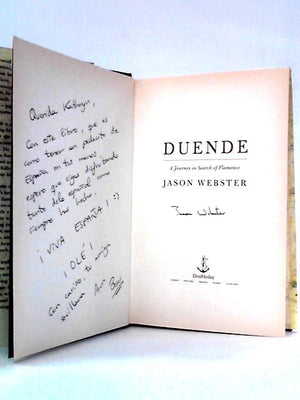 Querida Kathryn,
Con este libro, que es
como tener un pedacito de
España en tus manos,
espero que sigas disfrutando
tanto del español como
siempre has hecho.
¡ VIVA ESPAÑA ! =)
¡ OLÉ !
con cariño, tu amiga
sevillana
DUENDE
A Journey in Search of Flamenco
JASON WEBSTER
Jason Webster
Doubleday